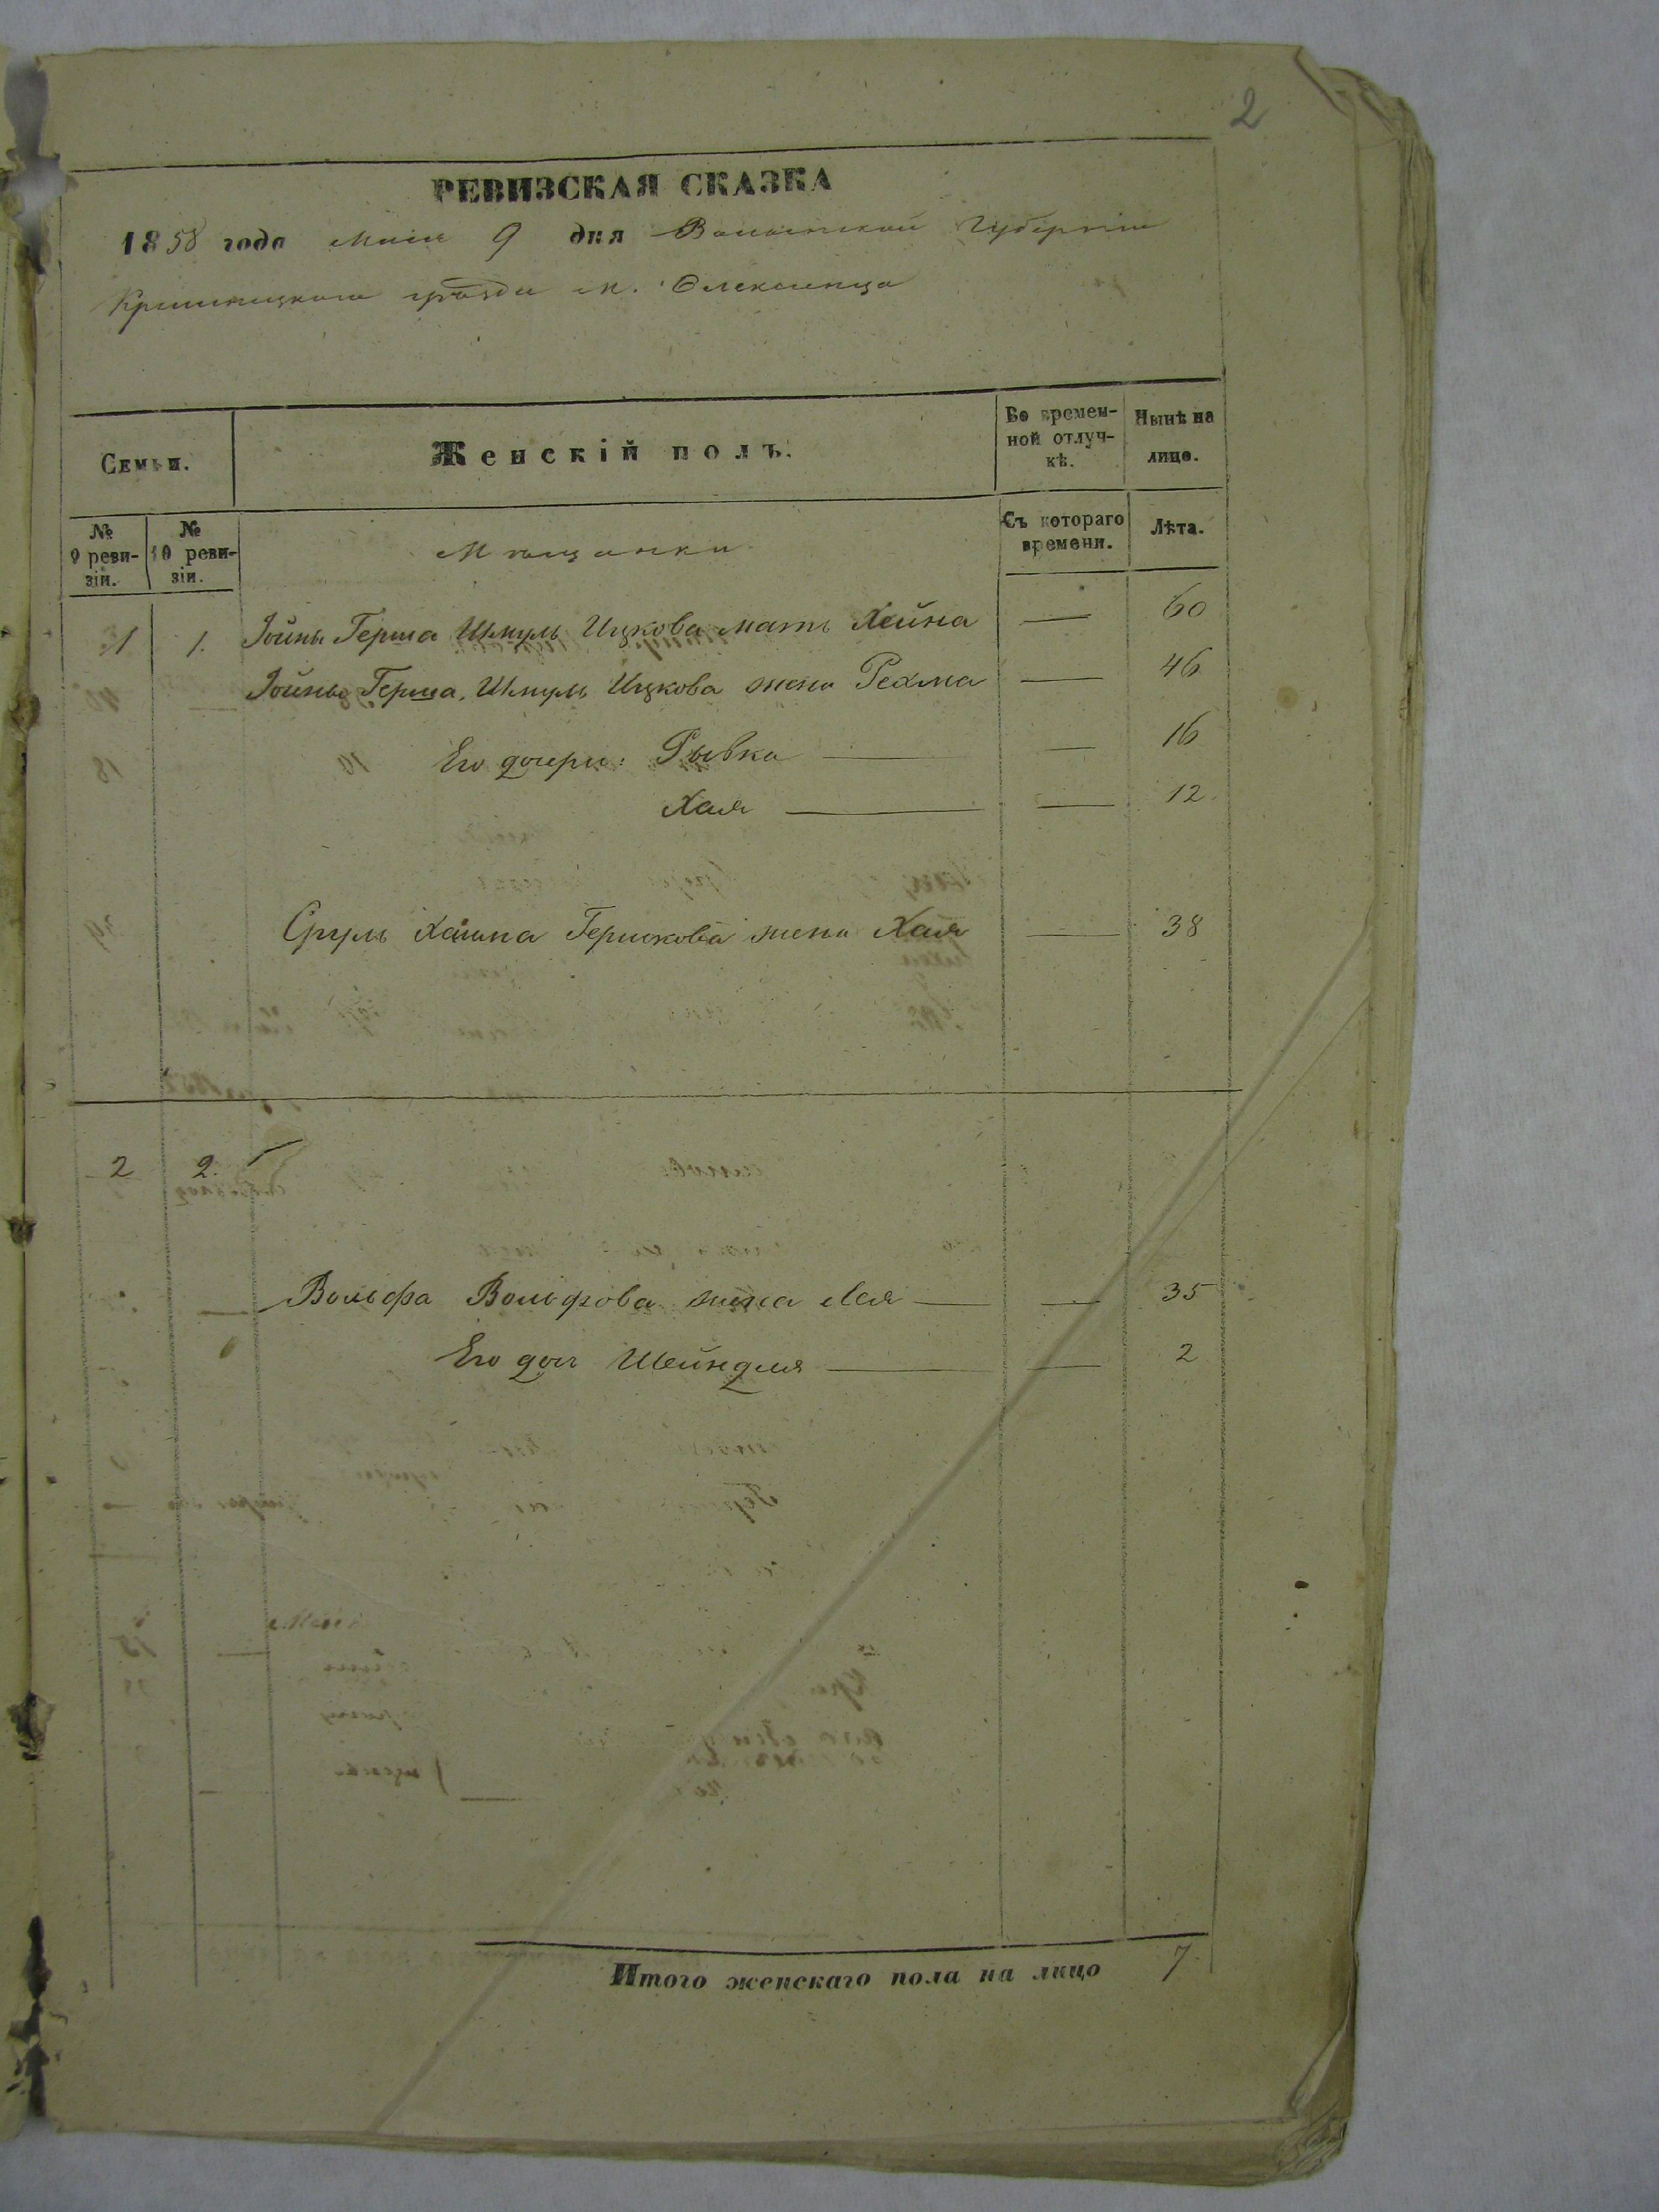 2
РЕВИЗСКАЯ СКАЗКА
1858 года Маія 9 дня Волынской Губерніи
Кременецкаго уѣзда м. Олексинца
Семьи.
Женскій полъ.
Во времен-
ной отлуч-
кѣ.
Нынѣ на
лицо.
№
9 реви-
зіи.
№
10 реви-
зіи.
Мѣщанки
Съ котораго
времени.
Лѣта.
1 1. Іойны Герша Шмуль Ицкова мать Хейна — 60
Іойны Герша Шмуль Ицкова жена Рехма — 46
Его дочери: Рывка — — 16
Хая — — 12
Сруль Хаима Гершкова жена Хая — 38
2 2.
Вольфа Вольфова жена Лея — — 35
Его доч Шейндля — — 2
Итого женскаго пола на лицо 7